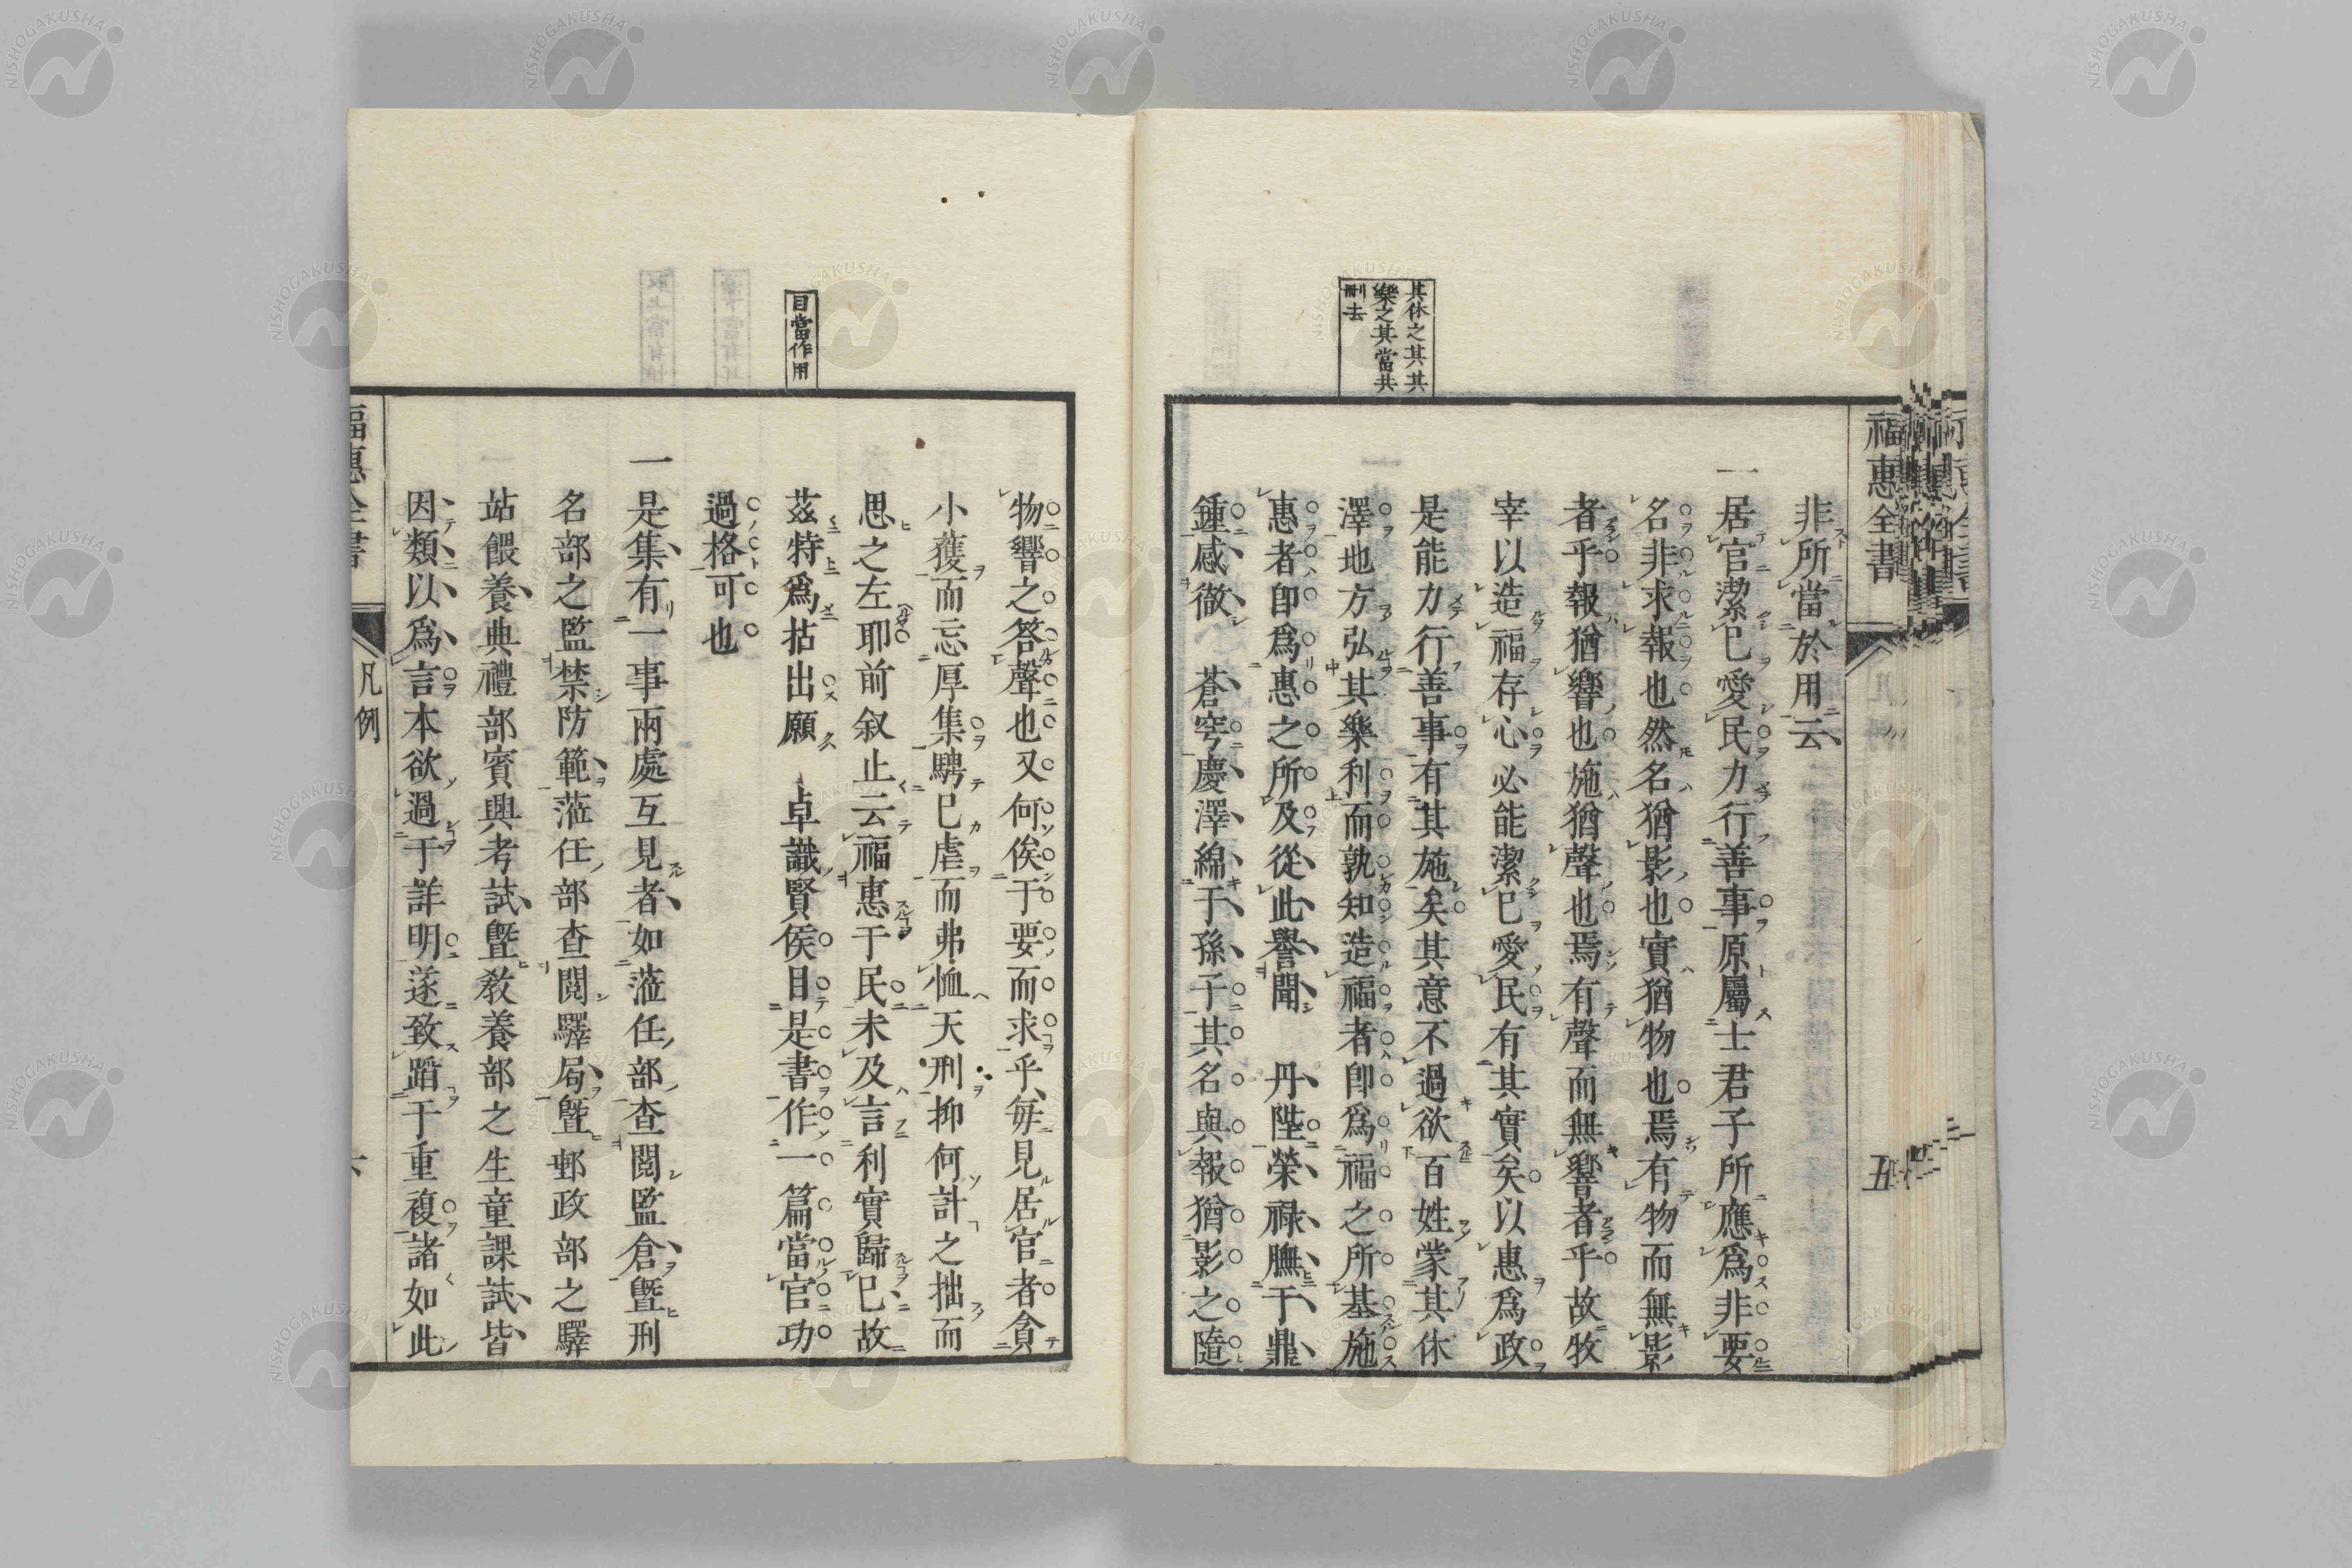 福惠全書
五
其休之其其
樂之其當共
刪去
非所當於用云
一居官潔已愛民力行善事原屬士君子所應爲非要
名非求報也然名猶影也實猶物也焉有物而無影
者乎報猶響也施猶聲也焉有聲而無響者乎故牧
宰以造福存心必能潔已愛民有其實矣以惠爲政
是能力行善事有其施矣其意不過欲百姓蒙其休
澤地方弘其樂利而孰知造福者卽爲福之所基施
惠者卽爲惠之所及從此譽聞 丹陛榮祿膴于鼎
鍾感徹 蒼穹慶澤綿于孫子其名與報猶影之隨
目當作用
物響之答聲也又何俟于要而求乎每見居官者貪
小獲而忘厚集騁已虐而弗恤天刑抑何計之拙而
思之左耶前叙止云福惠于民未及言利實歸已故
茲特爲拈出願 卓識賢侯目是書作一篇當官功
過格可也
一是集有一事兩處互見者如蒞任部查閱監倉曁刑
名部之監禁防範蒞任部查閱驛局曁郵政部之驛
站餵養典禮部賓興考試曁敎養部之生童課試皆
因類以爲言本欲過于詳明遂致蹈于重複諸如此
福惠全書
凡例